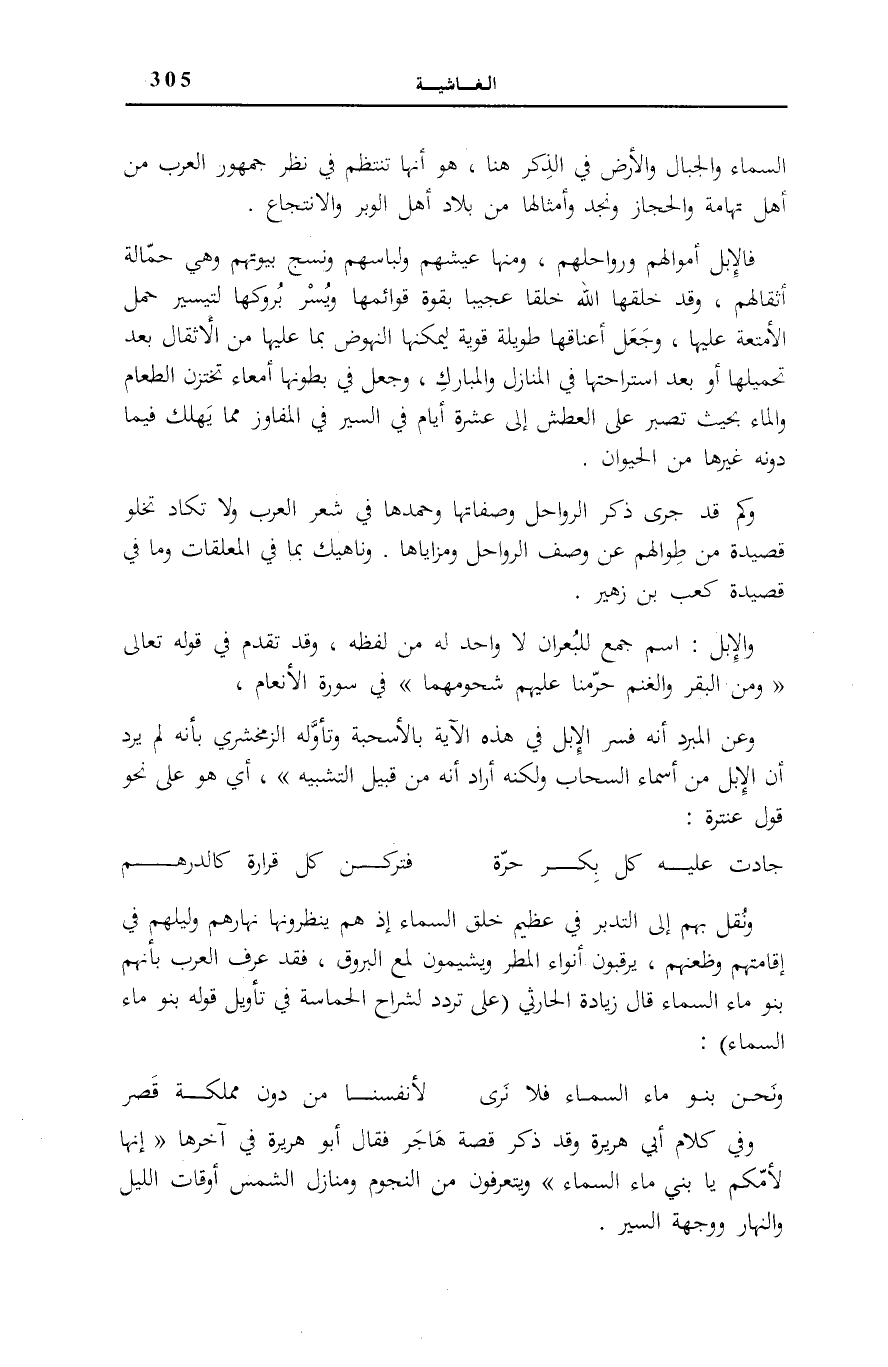 الغاشية 305
السماء والجبال والأرض في الذِكر هنا ، هو أنها تنتظم في نظر جمهور العرب من
أهل تهامة والحجاز ونجد وأمثالها من بلاد أهل الوبر والانتجاع .
فالإِبل أموالهم ورواحلهم ، ومنها عيشهم ولباسهم ونسج بيوتهم وهي حمّالة
أثقالهم ، وقد خلقها الله خلقا عجيبا بقوة قوائمها ويُسْر بُروكها لتيسير حمل
الأمتعة عليها ، وجَعَل أعناقها طويلة قوية ليمكنها النهوض بما عليها من الأثقال بعد
تحميلها أو بعد استراحتها في المنازل والمباركِ ، وجعل في بطونها أمعاء تختزن الطعام
والماء بحيث تصبر على العطش إلى عشرة أيام في السير في المفاوز مما يَهلك فيما
دونه غيرها من الحيوان .
وكم قد جرى ذكر الرواحل وصفاتها وحمدها في شعر العرب ولا تكاد تخلو
قصيدة من طِوالهم عن وصف الرواحل ومزاياها . وناهيك بما في المعلقات وما في
قصيدة كعب بن زهير .
والإِبل : اسم جمع للبُعران لا واحد له من لفظه ، وقد تقدم في قوله تعالى
« ومن البقر والغنم حرّمنا عليهم شحومهما » في سورة الأنعام ،
وعن المبرد أنه فسر الإِبل في هذه الآية بالأسحبة وتأوَّله الزمخشري بأنه لم يرد
أن الإِبل من أسماء السحاب ولكنه أراد أنه من قبيل التشبيه » ، أي هو على نحو
قول عنترة :
جادت عليه كل بِكر حرّة فتركن كل قرارة كالدرهم
ونُقل بهم إلى التدبر في عظيم خلق السماء إذ هم ينظرونها نهارهم وليلهم في
إقامتهم وظعنهم ، يرقبون أنواء المطر ويشيمون لمع البروق ، فقد عرف العرب بأنهم
بنو ماء السماء قال زيادة الحارثي (على تردد لشراح الحماسة في تأويل قوله بنو ماء
السماء) :
ونَحن بنو ماء السماء فلا نَرى لأنفسنا من دون مملكة قَصر
وفي كلام أبي هريرة وقد ذكر قصة هَاجَر فقال أبو هريرة في آخرها « إنها
لأمّكم يا بني ماء السماء » ويتعرفون من النجوم ومنازل الشمس أوقات الليل
والنهار ووجهة السير .